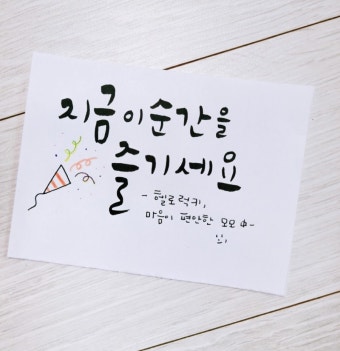 지금이순간을
즐기세요
- 헬로럭키,
마음이 편안한 모모 ф-